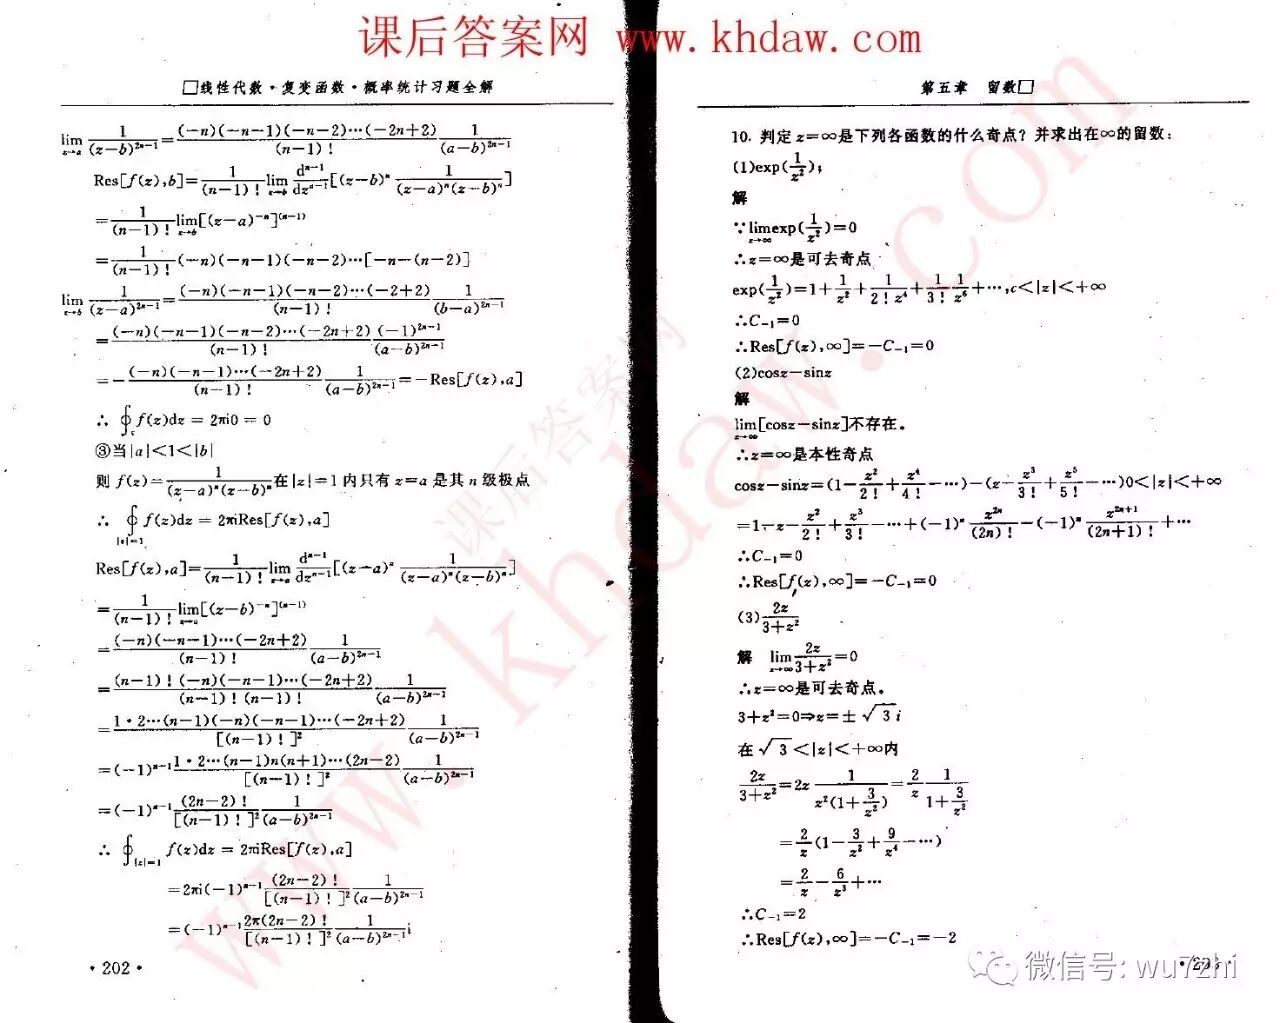 课后答案网 www.khdaw.com
□线性代数·复变函数·概率统计习题全解
lim_{z→a} 1/(z−b)^{2n−1} = (−n)(−n−1)(−n−2)…(−2n+2)/(n−1)! · 1/(a−b)^{2n−1}
Res[f(z),b] = 1/(n−1)! lim_{z→b} d^{n−1}/dz^{n−1}[(z−b)^n 1/((z−a)^n(z−b)^n)]
= 1/(n−1)! lim_{z→b}[(z−a)^{−n}]^{(n−1)}
= 1/(n−1)! (−n)(−n−1)(−n−2)…[−n−(n−2)]
lim_{z→b} 1/(z−a)^{2n−1} = (−n)(−n−1)(−n−2)…(−2+2)/(n−1)! · 1/(b−a)^{2n−1}
= (−n)(−n−1)(−n−2)…(−2n+2)/(n−1)! · (−1)^{2n−1}/(a−b)^{2n−1}
= −(−n)(−n−1)…(−2n+2)/(n−1)! · 1/(a−b)^{2n−1} = −Res[f(z),a]
∴ ∮_c f(z)dz = 2πi0 = 0
③当|a|<1<|b|
则 f(z)=1/((z−a)^n(z−b)^n) 在|z|=1内只有z=a是其n级极点
∴ ∮_{|z|=1} f(z)dz = 2πiRes[f(z),a]
Res[f(z),a] = 1/(n−1)! lim_{z→a} d^{n−1}/dz^{n−1}[(z−a)^n 1/((z−a)^n(z−b)^n)]
= 1/(n−1)! lim_{z→a}[(z−b)^{−n}]^{(n−1)}
= (−n)(−n−1)…(−2n+2)/(n−1)! · 1/(a−b)^{2n−1}
= (n−1)!(−n)(−n−1)…(−2n+2)/((n−1)!(n−1)!) · 1/(a−b)^{2n−1}
= 1·2…(n−1)(−n)(−n−1)…(−2n+2)/[(n−1)!]² · 1/(a−b)^{2n−1}
= (−1)^{n−1} 1·2…(n−1)n(n+1)…(2n−2)/[(n−1)!]² · 1/(a−b)^{2n−1}
= (−1)^{n−1} (2n−2)!/[(n−1)!]² · 1/(a−b)^{2n−1}
∴ ∮_{|z|=1} f(z)dz = 2πiRes[f(z),a]
= 2πi(−1)^{n−1} (2n−2)!/[(n−1)!]² · 1/(a−b)^{2n−1}
= (−1)^{n−1} 2π(2n−2)!/[(n−1)!]² · 1/(a−b)^{2n−1} i
·202·
第五章 留数□
10. 判定z=∞是下列各函数的什么奇点？并求出在∞的留数：
(1)exp(1/z²);
解
∵lim_{z→∞}exp(1/z²)=0
∴z=∞是可去奇点
exp(1/z²)=1+1/z²+1/2! 1/z⁴+1/3! 1/z⁶+…,c<|z|<+∞
∴C₋₁=0
∴Res[f(z),∞]=−C₋₁=0
(2)cosz−sinz
解
lim_{z→∞}[cosz−sinz]不存在。
∴z=∞是本性奇点
cosz−sinz=(1−z²/2!+z⁴/4!−…)−(z−z³/3!+z⁵/5!−…)0<|z|<+∞
=1−z−z²/2!+z³/3!−…+(−1)^n z^{2n}/(2n)!−(−1)^n z^{2n+1}/(2n+1)!+…
∴C₋₁=0
∴Res[f(z),∞]=−C₋₁=0
(3)2z/(3+z²)
解 lim_{z→∞} 2z/(3+z²)=0
∴z=∞是可去奇点。
3+z²=0⇒z=±√3i
在√3<|z|<+∞内
2z/(3+z²)=2z 1/(z²(1+3/z²))=2/z 1/(1+3/z²)
=2/z(1−3/z²+9/z⁴−…)
=2/z−6/z³+…
∴C₋₁=2
∴Res[f(z),∞]=−C₋₁=−2
微信号: wu7zhi
课后答案网
www.khdaw.com